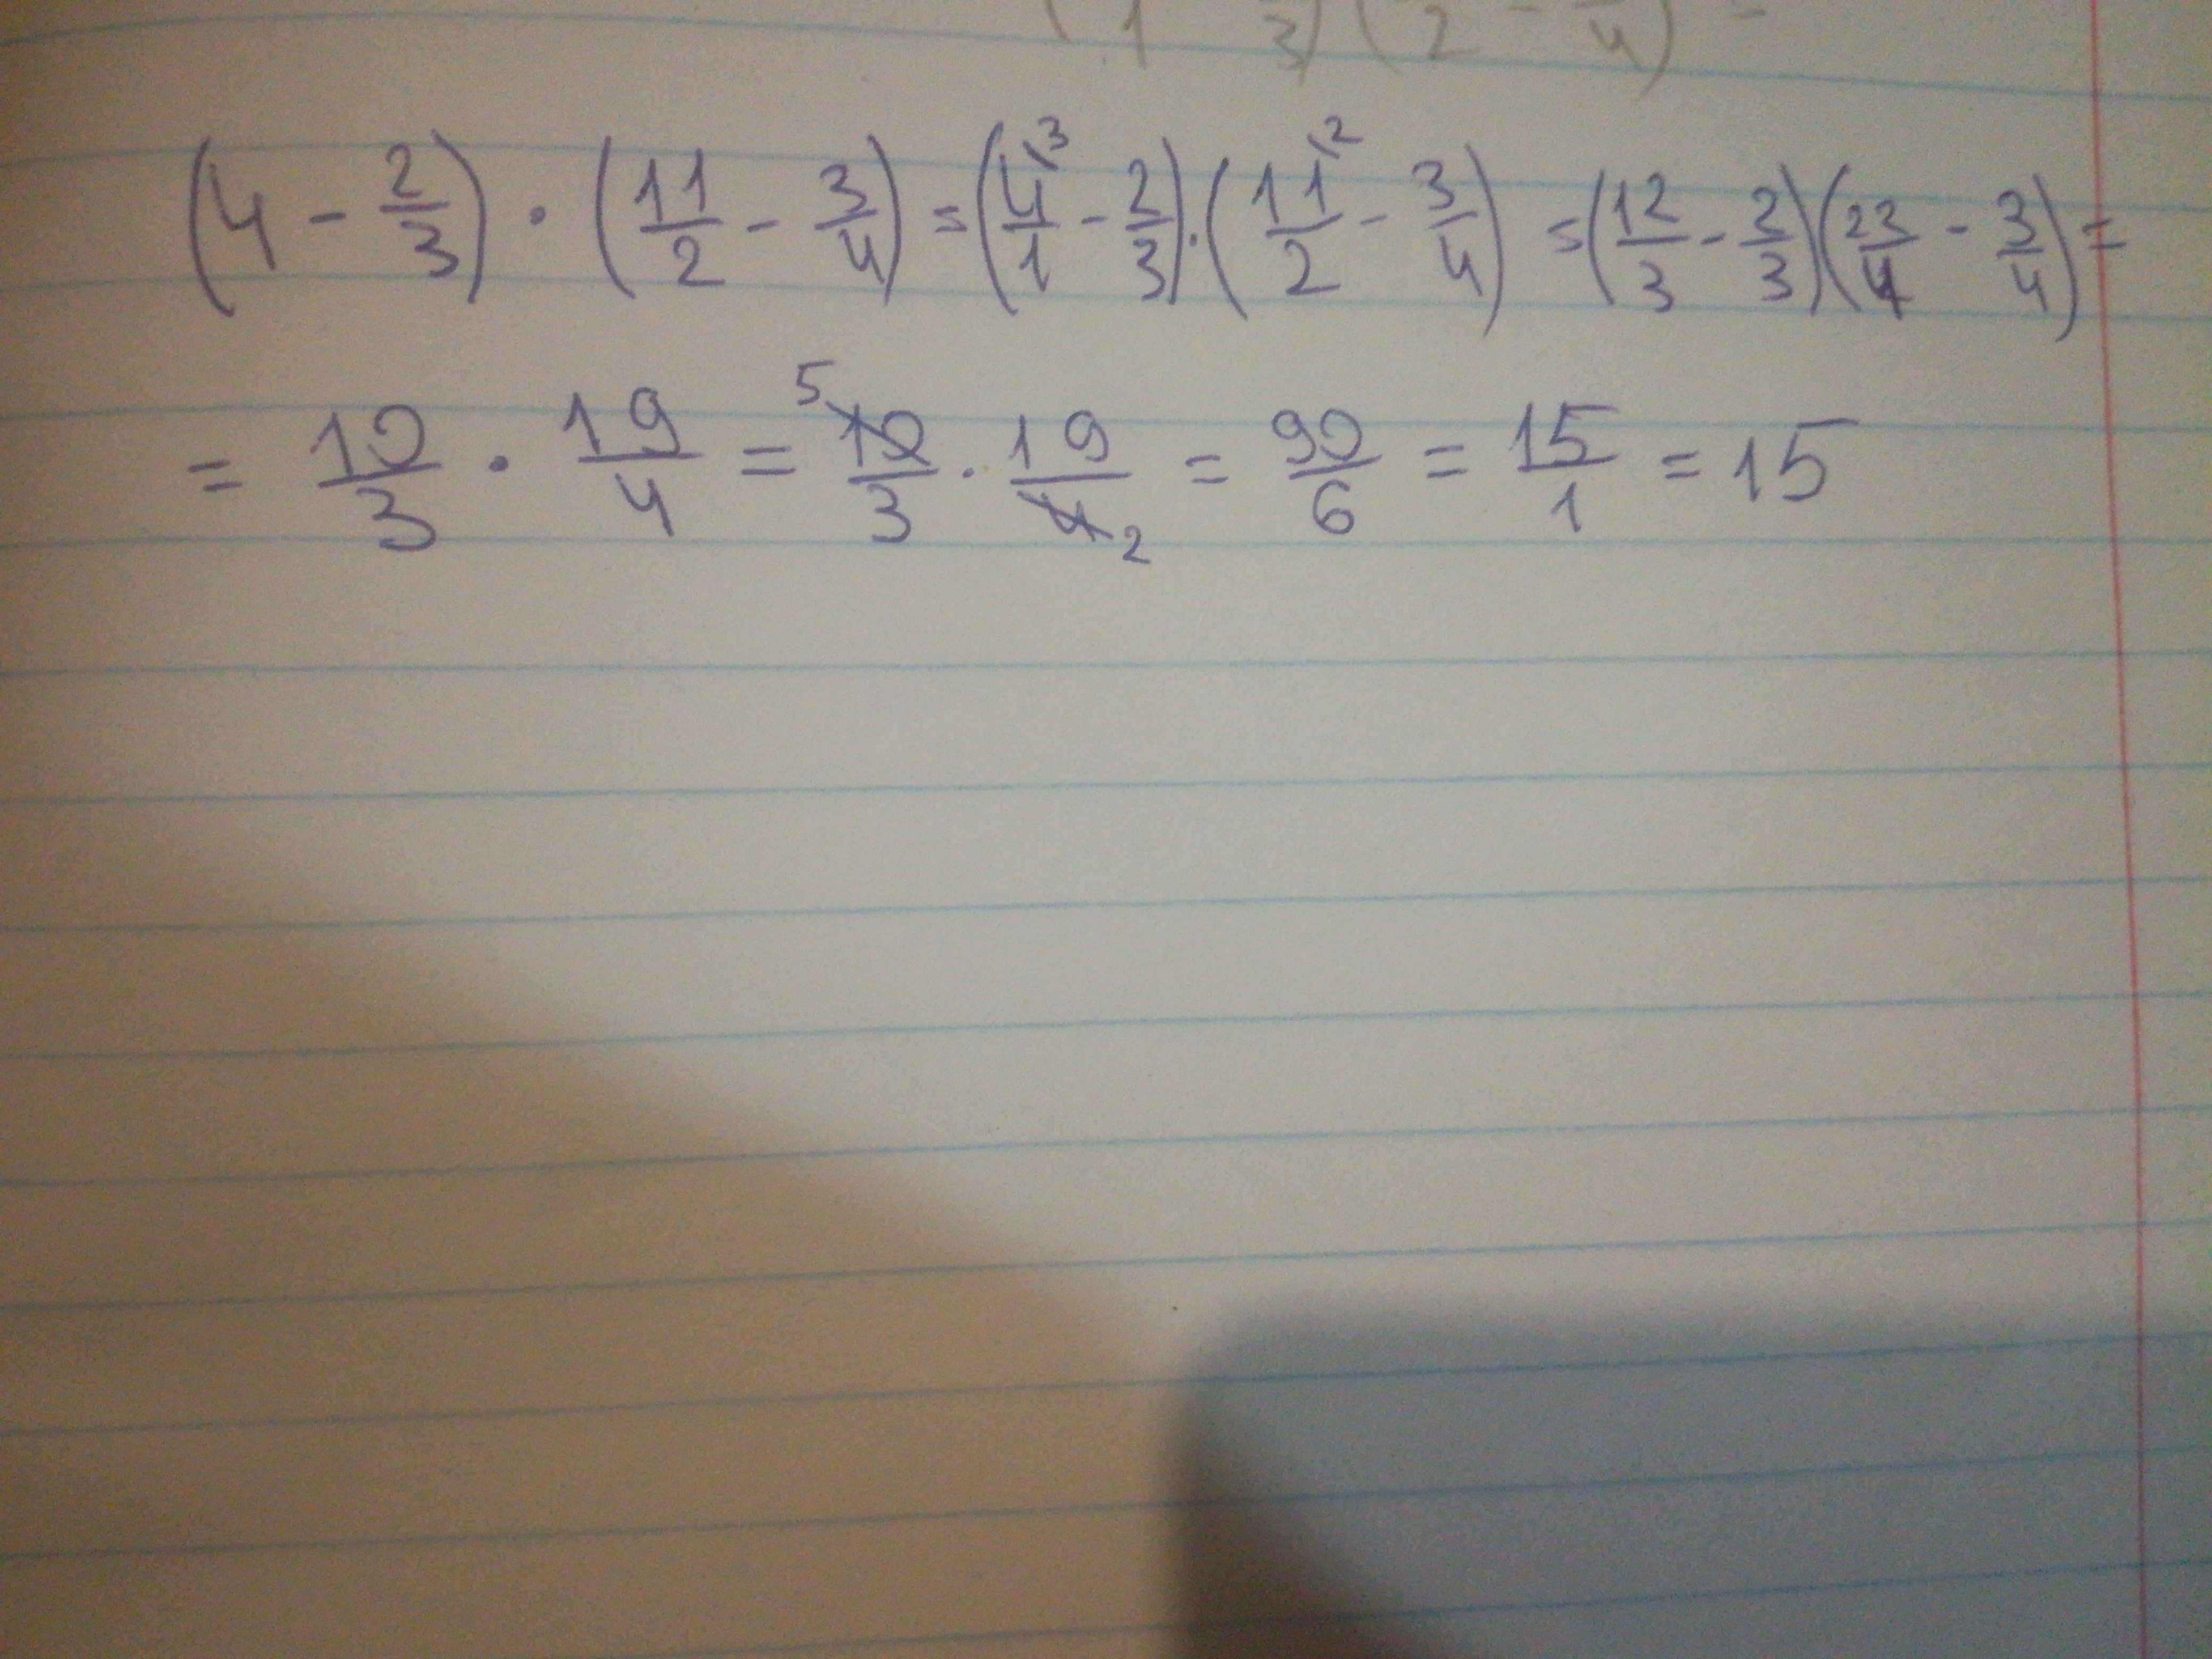 1 3) (2 - 4) =
(4 - 2/3) · (11/2 - 3/4) = (4\3/1 - 2/3) · (11\2/2 - 3/4) = (12/3 - 2/3)(22/4 - 3/4) =
= 10/3 · 19/4 = 5 10/3 · 19/4 2 = 90/6 = 15/1 = 15